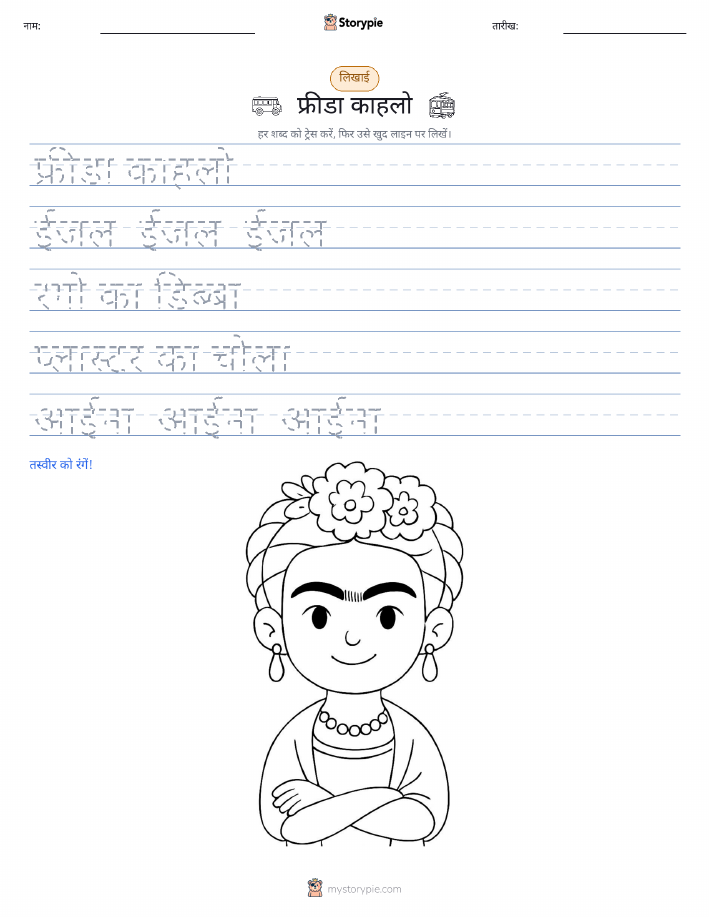 नाम: Storypie तारीख:
लिखाई
फ्रीडा काहलो
हर शब्द को ट्रेस करें, फिर उसे खुद लाइन पर लिखें।
फ्रीडा काहलो
ईजल ईजल ईजल
रंगों का डिब्बा
प्लास्टर का चोला
आईना आईना आईना
तस्वीर को रंगें!
mystorypie.com